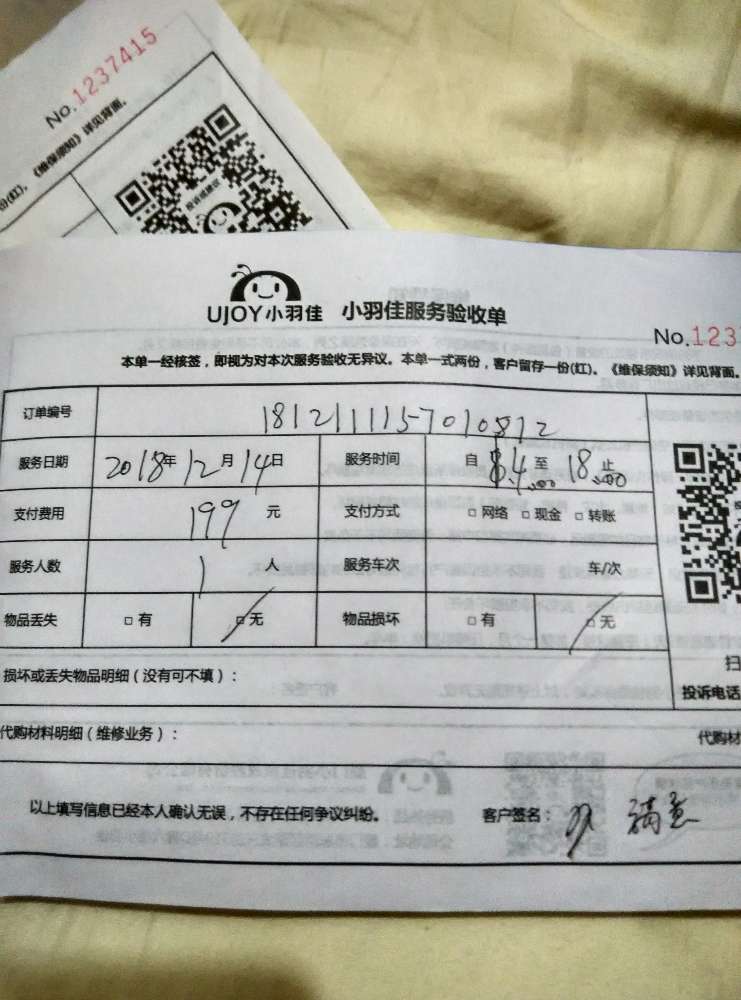 No.1237415
份(红)。《维保须知》详见背面。
投诉或建议
UJOY小羽佳 小羽佳服务验收单
No.123
本单一经核签，即视为对本次服务验收无异议。本单一式两份，客户留存一份(红)。《维保须知》详见背面。
订单编号 1812111157010812
服务日期 2018年12月14日 服务时间 自 14:00 至 18:00 止
支付费用 199 元 支付方式 □ 网络 □ 现金 □ 转账
服务人数 1 人 服务车次 车/次
物品丢失 □ 有 □ 无 物品损坏 □ 有 □ 无
扫
损坏或丢失物品明细（没有可不填）：
投诉电话
代购材料明细（维修业务）：
代购材
以上填写信息已经本人确认无误，不存在任何争议纠纷。 客户签名： 满意